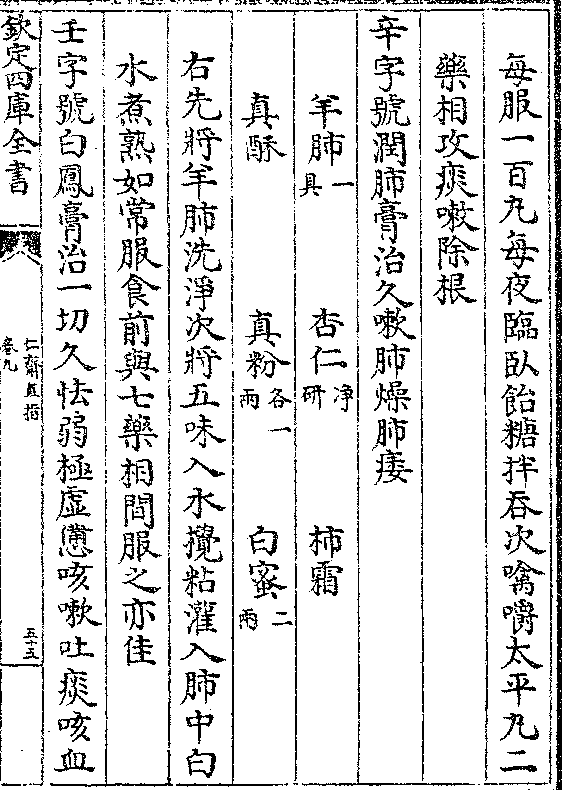 每服一百丸每夜臨臥飴糖拌吞次噙嚼太平丸二
藥相攻痰嗽除根
辛字號潤肺膏治久嗽肺燥肺痿
羊肺一具　杏仁淨研　柿霜
真酥　真粉各一兩　白蜜二兩
右先將羊肺洗淨次將五味入水攪粘灌入肺中白
水煮熟如常服食前與七藥相間服之亦佳
壬字號白鳳膏治一切久怯弱極虛憊咳嗽吐痰咳血
欽定四庫全書
仁齋直指
卷九
五十五